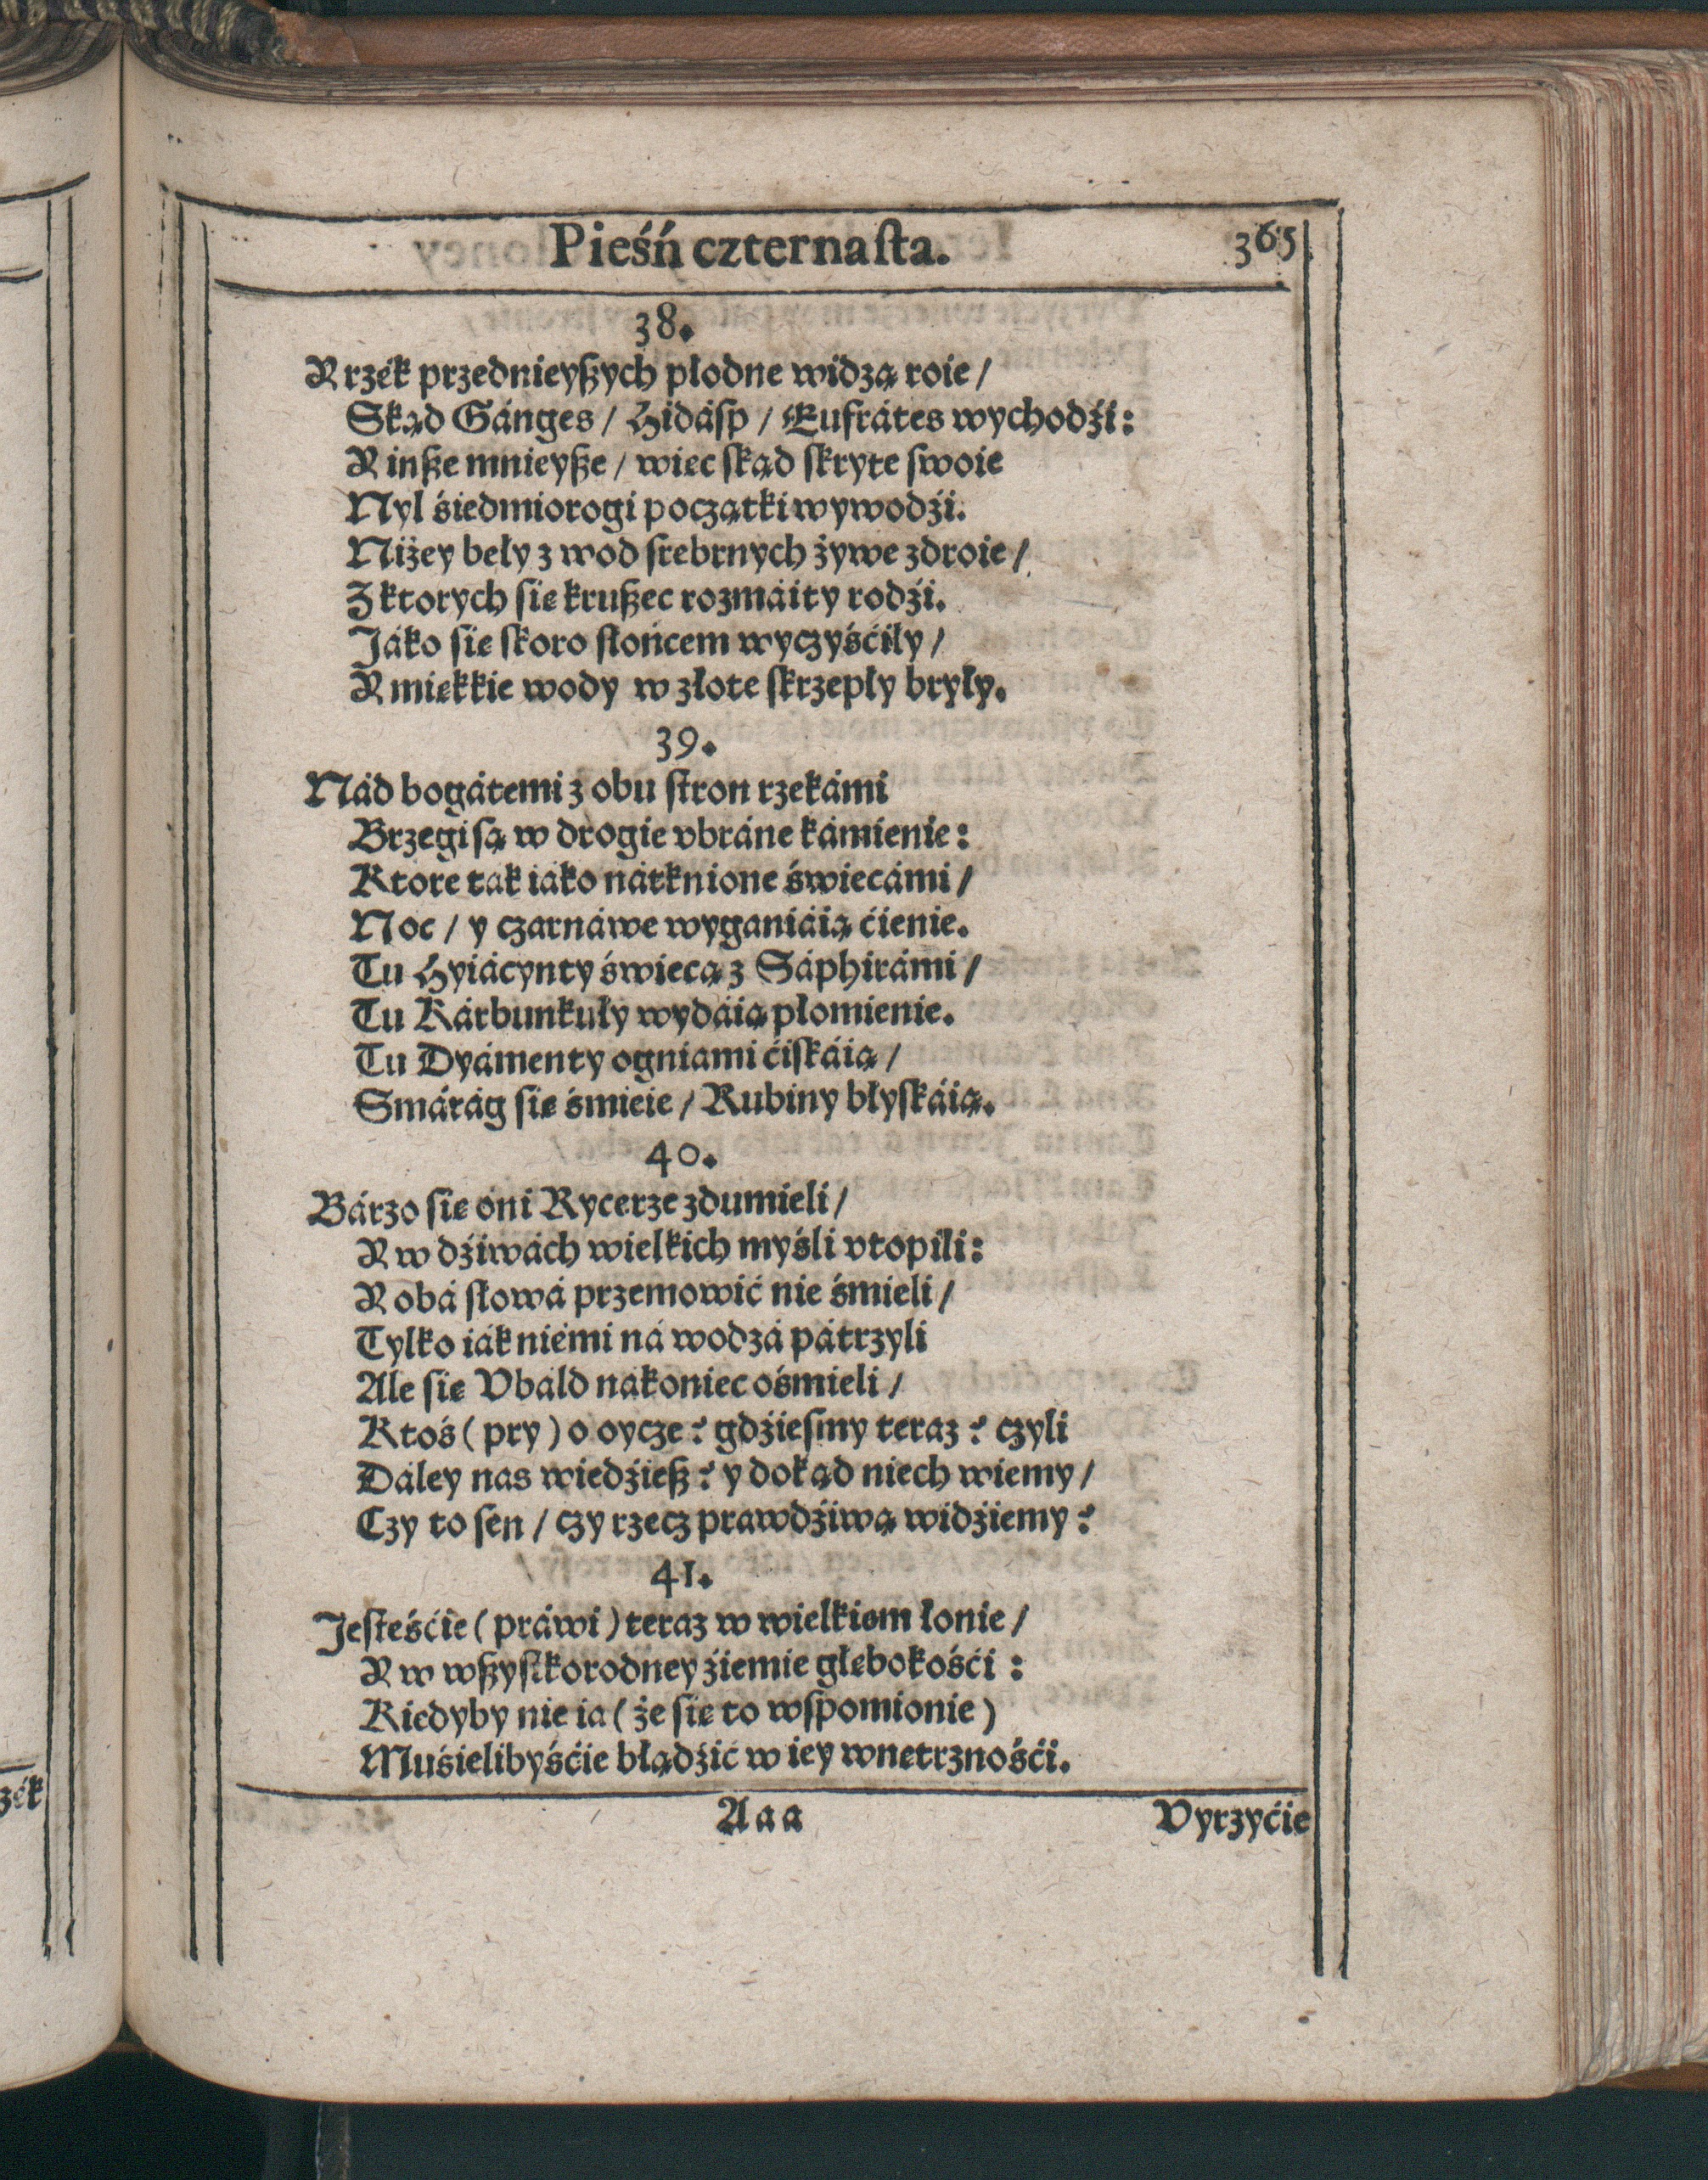 Pieśń czternaſta. 365
38.
R rzék przednieyßych płodne widzą roie /
Skąd Gánges / Hidáſp / Eufrátes wychodźi:
R inße mnieyße / więc ſkąd ſkryte ſwoie
Nyl śiedmiorogi początki wywodźi.
Niżey beły z wod ſrebrnych żywe zdroie /
Z ktorych ſię krußec rozmáity rodźi.
Jáko ſię ſkoro ſłońcem wyczyśćiły /
R miękkie wody w złote ſkrzepły bryły.
39.
Nád bogátemi z obu ſtron rzekámi
Brzegi ſą w drogie vbráne kámienie:
Ktore tak iáko nátknione świecámi /
Noc / y czarnáwe wyganiáią ćienie.
Tu Hyiácynty świecą z Sáphirámi /
Tu Kárbunkuły wydáią płomienie.
Tu Dyámenty ogniami ćiſkáią /
Smárág ſię śmieie / Rubiny błyſkáią.
40.
Bárzo ſię oni Rycerze zdumieli /
R w dźiwách wielkich myśli vtopili:
R obá ſłowá przemowić nie śmieli /
Tylko iák niemi ná wodzá pátrzyli
Ale ſię Vbáld nakoniec ośmieli /
Ktoś ( pry ) o oycze ? gdźieſmy teraz ? czyli
Dáley nas wiedźieß ? y dokąd niech wiemy /
Czy to ſen / czy rzecz prawdźiwą widźiemy ?
41.
Jeſteśćie ( práwi ) teraz w wielkiem łonie /
R w wßyſtkorodney źiemie głębokośći :
Kiedyby nie ia ( że ſię to wſpomionie )
Muśielibyśćie błądźić w iey wnętrznośći.
Aaa Vyrzyćie
zék